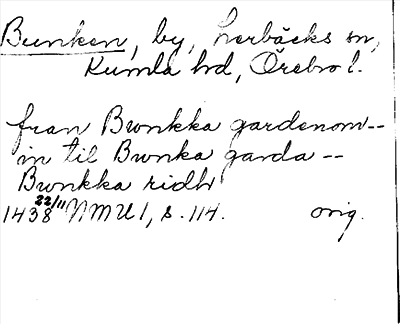 Bunken, by, Lerbäcks sn,
Kumla hd, Örebro l.
fran Bwnkka gardenom--
in til Bwnka garda --
Bwnkka ridh
1438 22/11 NMU 1, s. 114. orig.